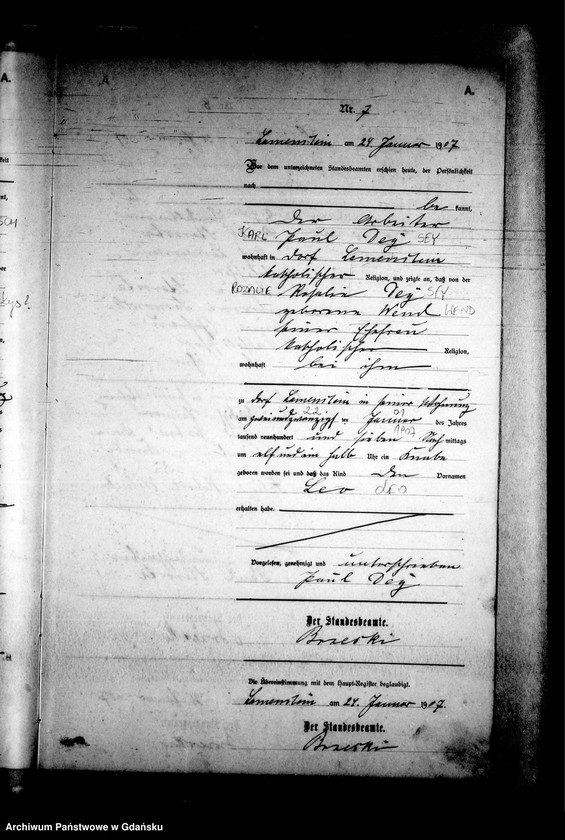 A.
A.
Nr. 7
am 24 Januar 1907
Vor dem unterzeichneten Standesbeamten erschien heute, der Persönlichkeit
nach
be kannt,
der Arbeiter
KARL Paul Dey SEY
wohnhaft in Dorf
katholischer Religion, und zeigte an, daß von der
ROZALIE Rosalie Dey SEY
geborene Wend WEND
seiner Ehefrau
katholischer Religion,
wohnhaft bei ihm
zu Dorf in seiner Wohnung
am zwei und zwanzigsten 22 Januar 01 des Jahres
tausend neunhundert und sieben 1907 Nach mittags
um elf und ein halb Uhr ein Knabe
geboren worden sei und daß das Kind den Vornamen
Leo LEO
erhalten habe.
Vorgelesen, genehmigt und unterschrieben
Paul Dey
Der Standesbeamte.
Brzeski
Die Übereinstimmung mit dem Haupt-Register beglaubigt.
am 24. Januar 1907.
Der Standesbeamte.
Brzeski
Archiwum Państwowe w Gdańsku